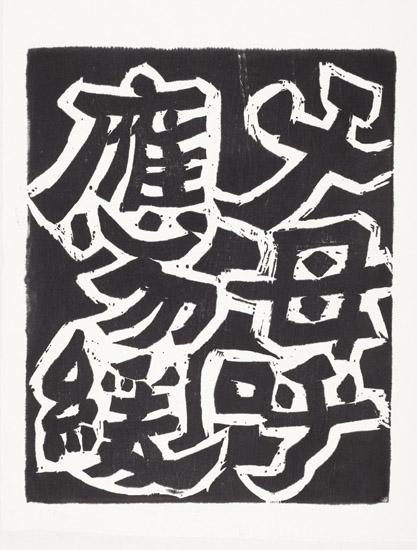 父母呼
應勿緩